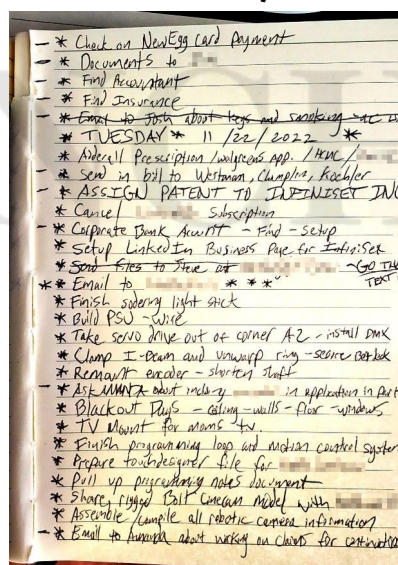 - * Check on NewEgg Card Payment
- * Documents to
- * Find Accountant
- * Find Insurance
- * Email to Josh about keys and smoking
- * TUESDAY * 11/22/2022 *
- * Adderall Prescription / walgreens App. /
- * Send in bill to Westman, Champlin, Koehler
- * ASSIGN PATENT TO INFINISET INC
* Cancel Subscription
* Corporate Bank Account - Find - Setup
* Setup LinkedIn Business Page for Infiniset
* Send files to Steve at ~GO TH
* * Email to * * * TEXT
* Finish sodering light stick
* Build PSU - Wire
* Take servo drive out of corner A2 - install DMX
* Clamp I-Beam and unwarp ring - secure
* Remount encoder - shorten shaft
- * Ask AMANDA about in application in part
* Blackout Dugs - ceiling - walls - floor - windows
* TV Mount for moms tv.
* Finish programming loop and motion control system
* Prepare touchdesigner file for
* Pull up programming notes document
* Share rigged Bolt Cinecam model with
* Assemble / compile all robotic camera information
- * Email to Amanda about working on claims for continuation